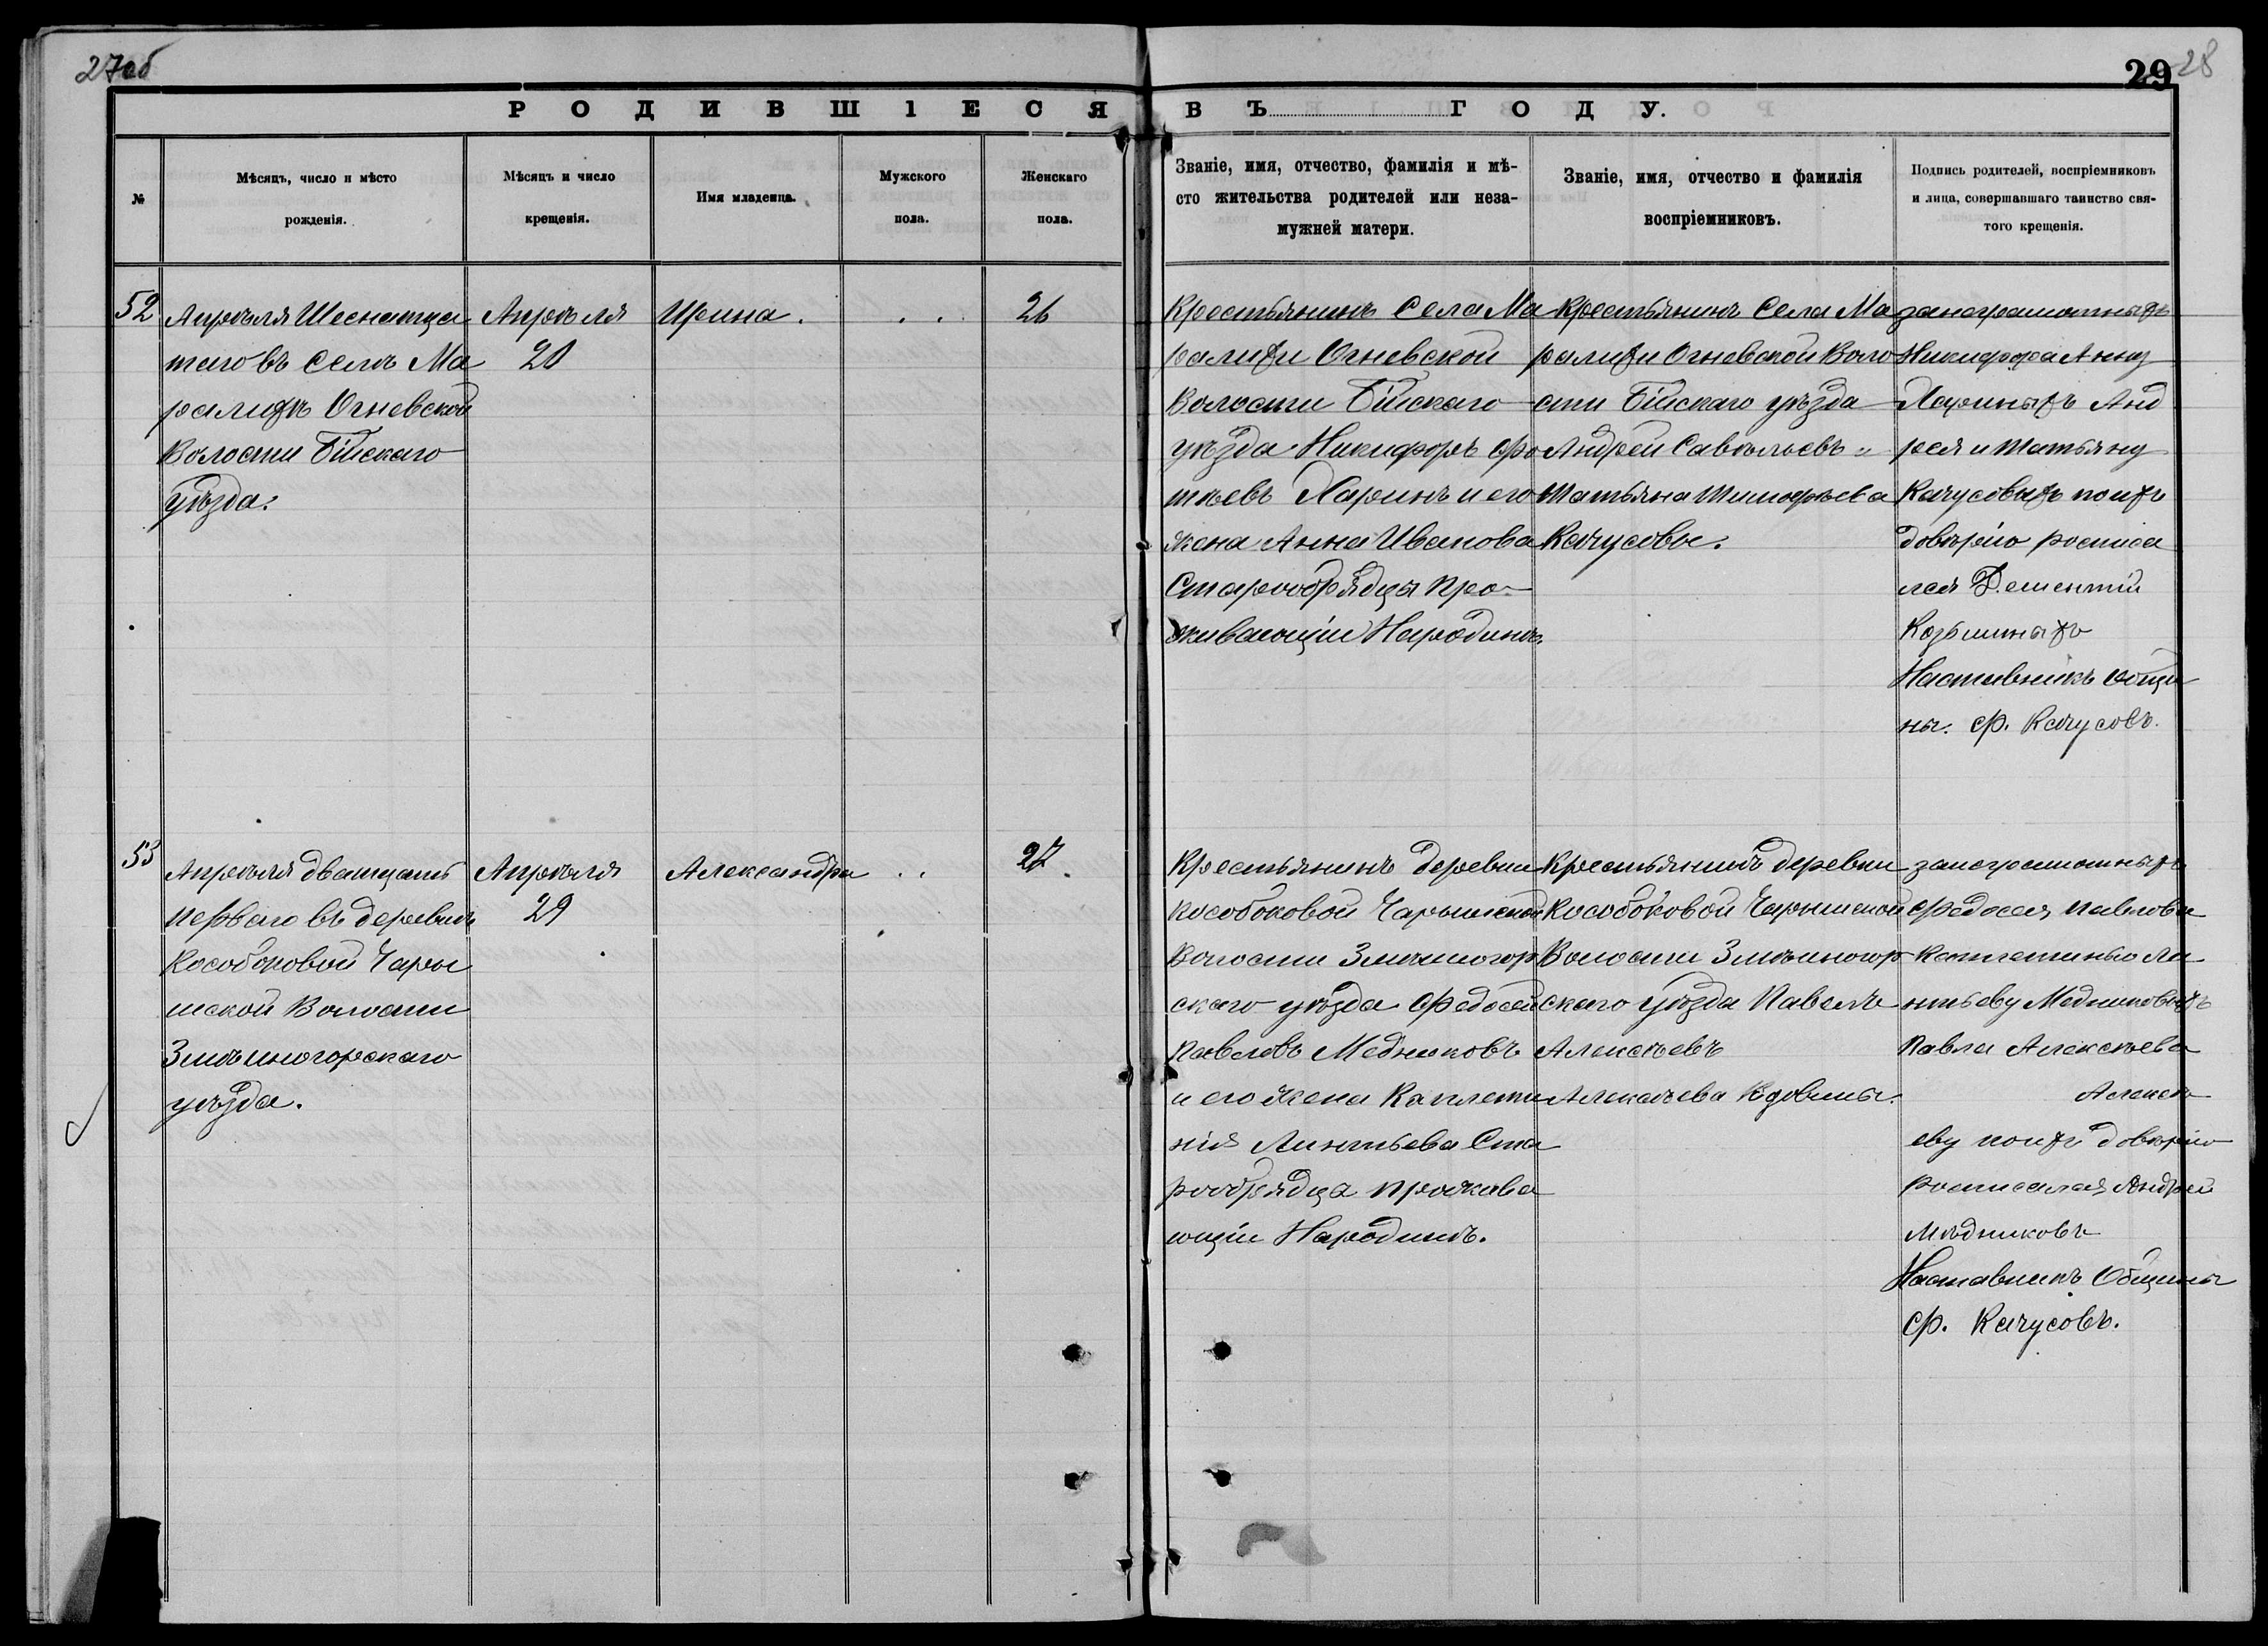 27об
29 28
РОДИВШІЕСЯ ВЪ ГОДУ.
№
Мѣсяцъ, число и мѣсто
рожденія.
Мѣсяцъ и число
крещенія.
Имя младенца.
Мужского
пола.
Женскаго
пола.
Званіе, имя, отчество, фамилія и мѣ-
сто жительства родителей или неза-
мужней матери.
Званіе, имя, отчество и фамилія
воспріемниковъ.
Подпись родителей, воспріемниковъ
и лица, совершавшаго таинство свя-
того крещенія.
52
Апрѣля Шеснатца
таго въ селѣ Ма
ралихѣ Огневской
Волости Бійскаго
уѣзда.
Апрѣля
20
Ирина.
. .
26
Крестьянинъ Села Ма
ралихи Огневской
Волости Бійскаго
уѣзда Никифоръ Фо
тѣевъ Ларинъ и его
жена Анна Иванова
Старообрядцы про-
живающіи Народинѣ.
Крестьянинъ Села Ма
ралихи Огневской Воло
сти Бійскаго уѣзда
Андрей Савельевъ и
Татьяна Тимофѣева
Качусовы.
занеграмотныхъ
Никифора Анну
Лариныхъ Анд
рея и Татьяну
Качусовыхъ поихъ
довѣрію росписа
лся Дементій
Козьминыхъ
Наставникъ общи
ны. Ф. Качусовъ.
53
Апрѣля дватцать
перваго въ деревнѣ
Кособоковой Чары
шской Волости
Змѣиногорскаго
уѣзда.
Апрѣля
29
Александра
. .
27.
Крестьянинъ деревни
Кособоковой Чарышской
Волости Змѣиногор
скаго уѣзда Федосей
Павловъ Медниковъ
и его жена Каплети
нія Линтьева Ста
рообрядца прожива
ющіи Народинѣ.
Крестьянинъ деревни
Кособоковой Чарышской
Волости Змѣиногор
скаго уѣзда Павелъ
Алексѣевъ
Алексѣева Вдовины.
занеграмотныхъ
Федосея Павлова
Каплетинью Ли
нтьеву Медниковыхъ
Павла Алексѣева
Алексѣ
еву поихъ довѣрію
росписался Андрей
Мѣдниковъ
Наставникъ Общины
Ф. Качусовъ.